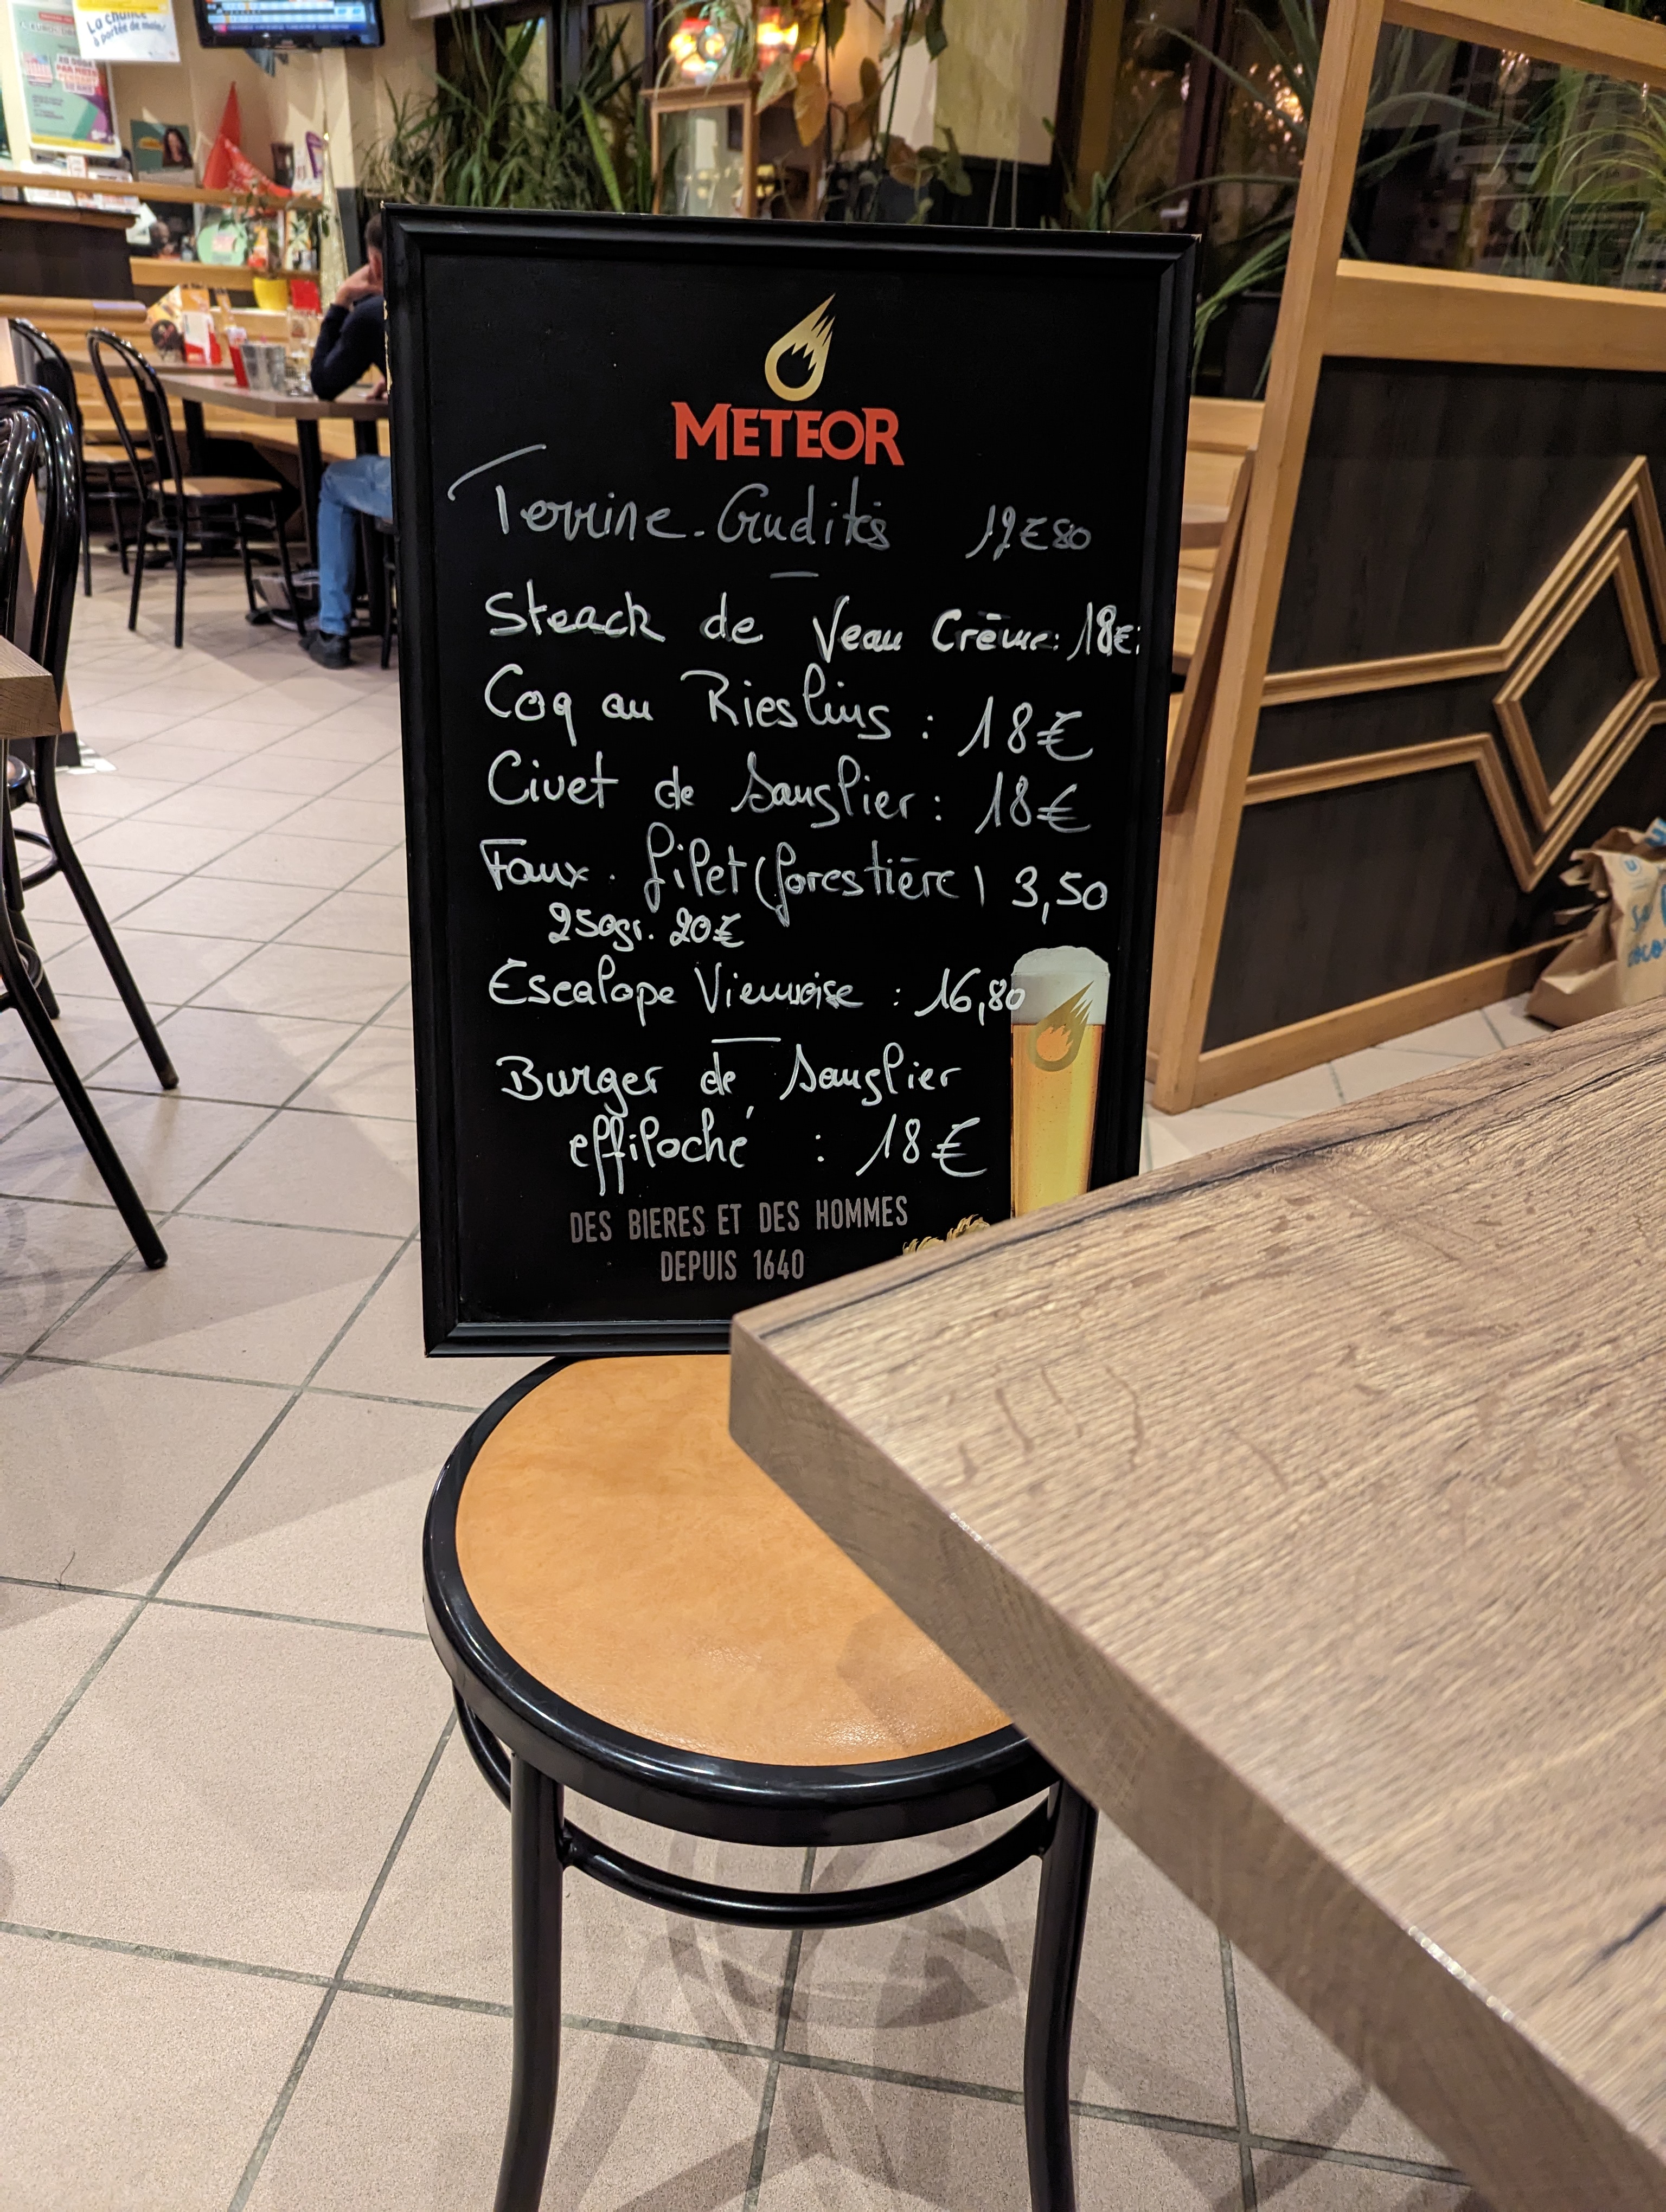 La chance
à portée de main !
METEOR
Terrine-Crudités 12€80
Steack de Veau Crème: 18€:
Coq au Riesling : 18€
Civet de Sanglier : 18€
Faux. filet (forestière) 3,50
250gr. 20€
Escalope Viennoise : 16,80
Burger de Sanglier
effiloché : 18€
DES BIERES ET DES HOMMES
DEPUIS 1640